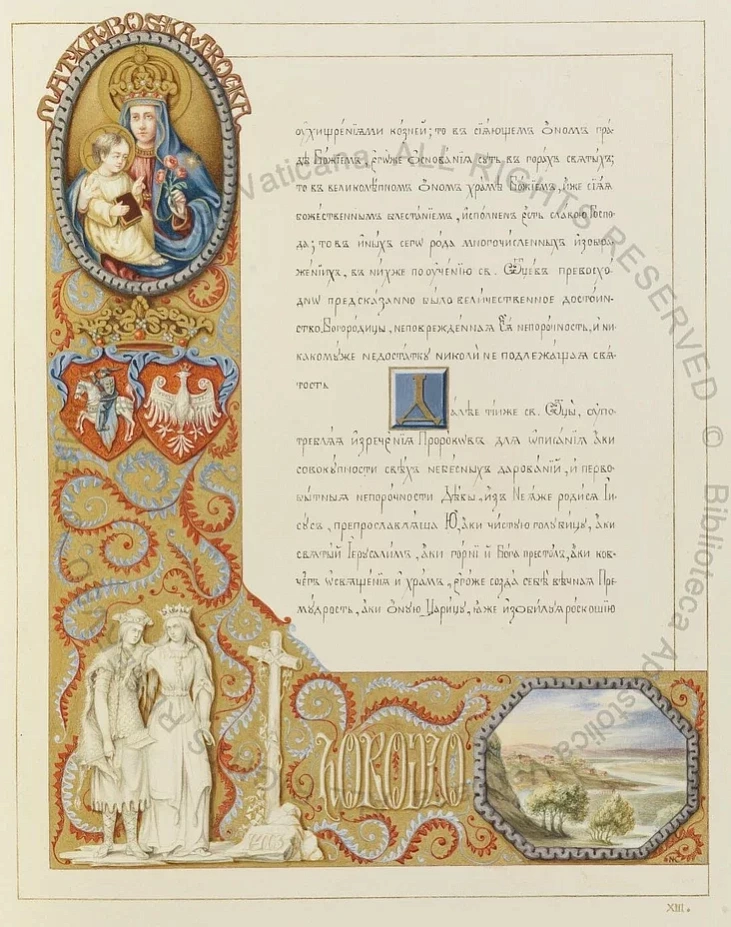 MATKA·BOSKA·TROCKA
ѹхищренїѧми козней; то въ сїѧющемъ Ономъ гра-
дѣ Божїемъ, єгѡже Основанїѧ суть въ горахъ свѧтыхъ;
то въ великолѣпномъ Ономъ храмѣ Божїемъ, иже сїѧѧ
божественнымъ блестанїемъ, исполненъ єсть славою Госпо-
да; то въ иныхъ сегѡ рода многочисленныхъ изобра-
женїихъ, въ нихже по ѹченїю св. Ѿцевъ превосхо-
днѡ предсказанно было величественное достоин-
ство Богородицы, неповрежденнаѧ Єѧ непорочность, и ни-
какомуже недостатку николи не подлежащаѧ свѧ-
тость
Далѣе тїиже св. Ѿцы, ѹпо-
треблѧѧ изреченїѧ Пророкѡвъ длѧ ѡписанїѧ аки
совокупности свѣхъ небесныхъ дарованїй, и перво-
бытныѧ непорочности Дѣвы, изъ Неѧже родисѧ Їи-
сусъ, препрославлѧша Ю, аки чистую голубицу, аки
свѧтый Їерусалимъ, аки горнїй Бога престолъ, аки ков-
чегъ ѡсвѧщенїѧ и храмъ, єгоже созда себѣ вѣчнаѧ Пре-
мудрость, аки Оную Царицу, ꙗже изобилуѧ роскошїю
HORODŁO
1413
XIII.
Biblioteca Apostolica Vaticana, ALL RIGHTS RESERVED ©